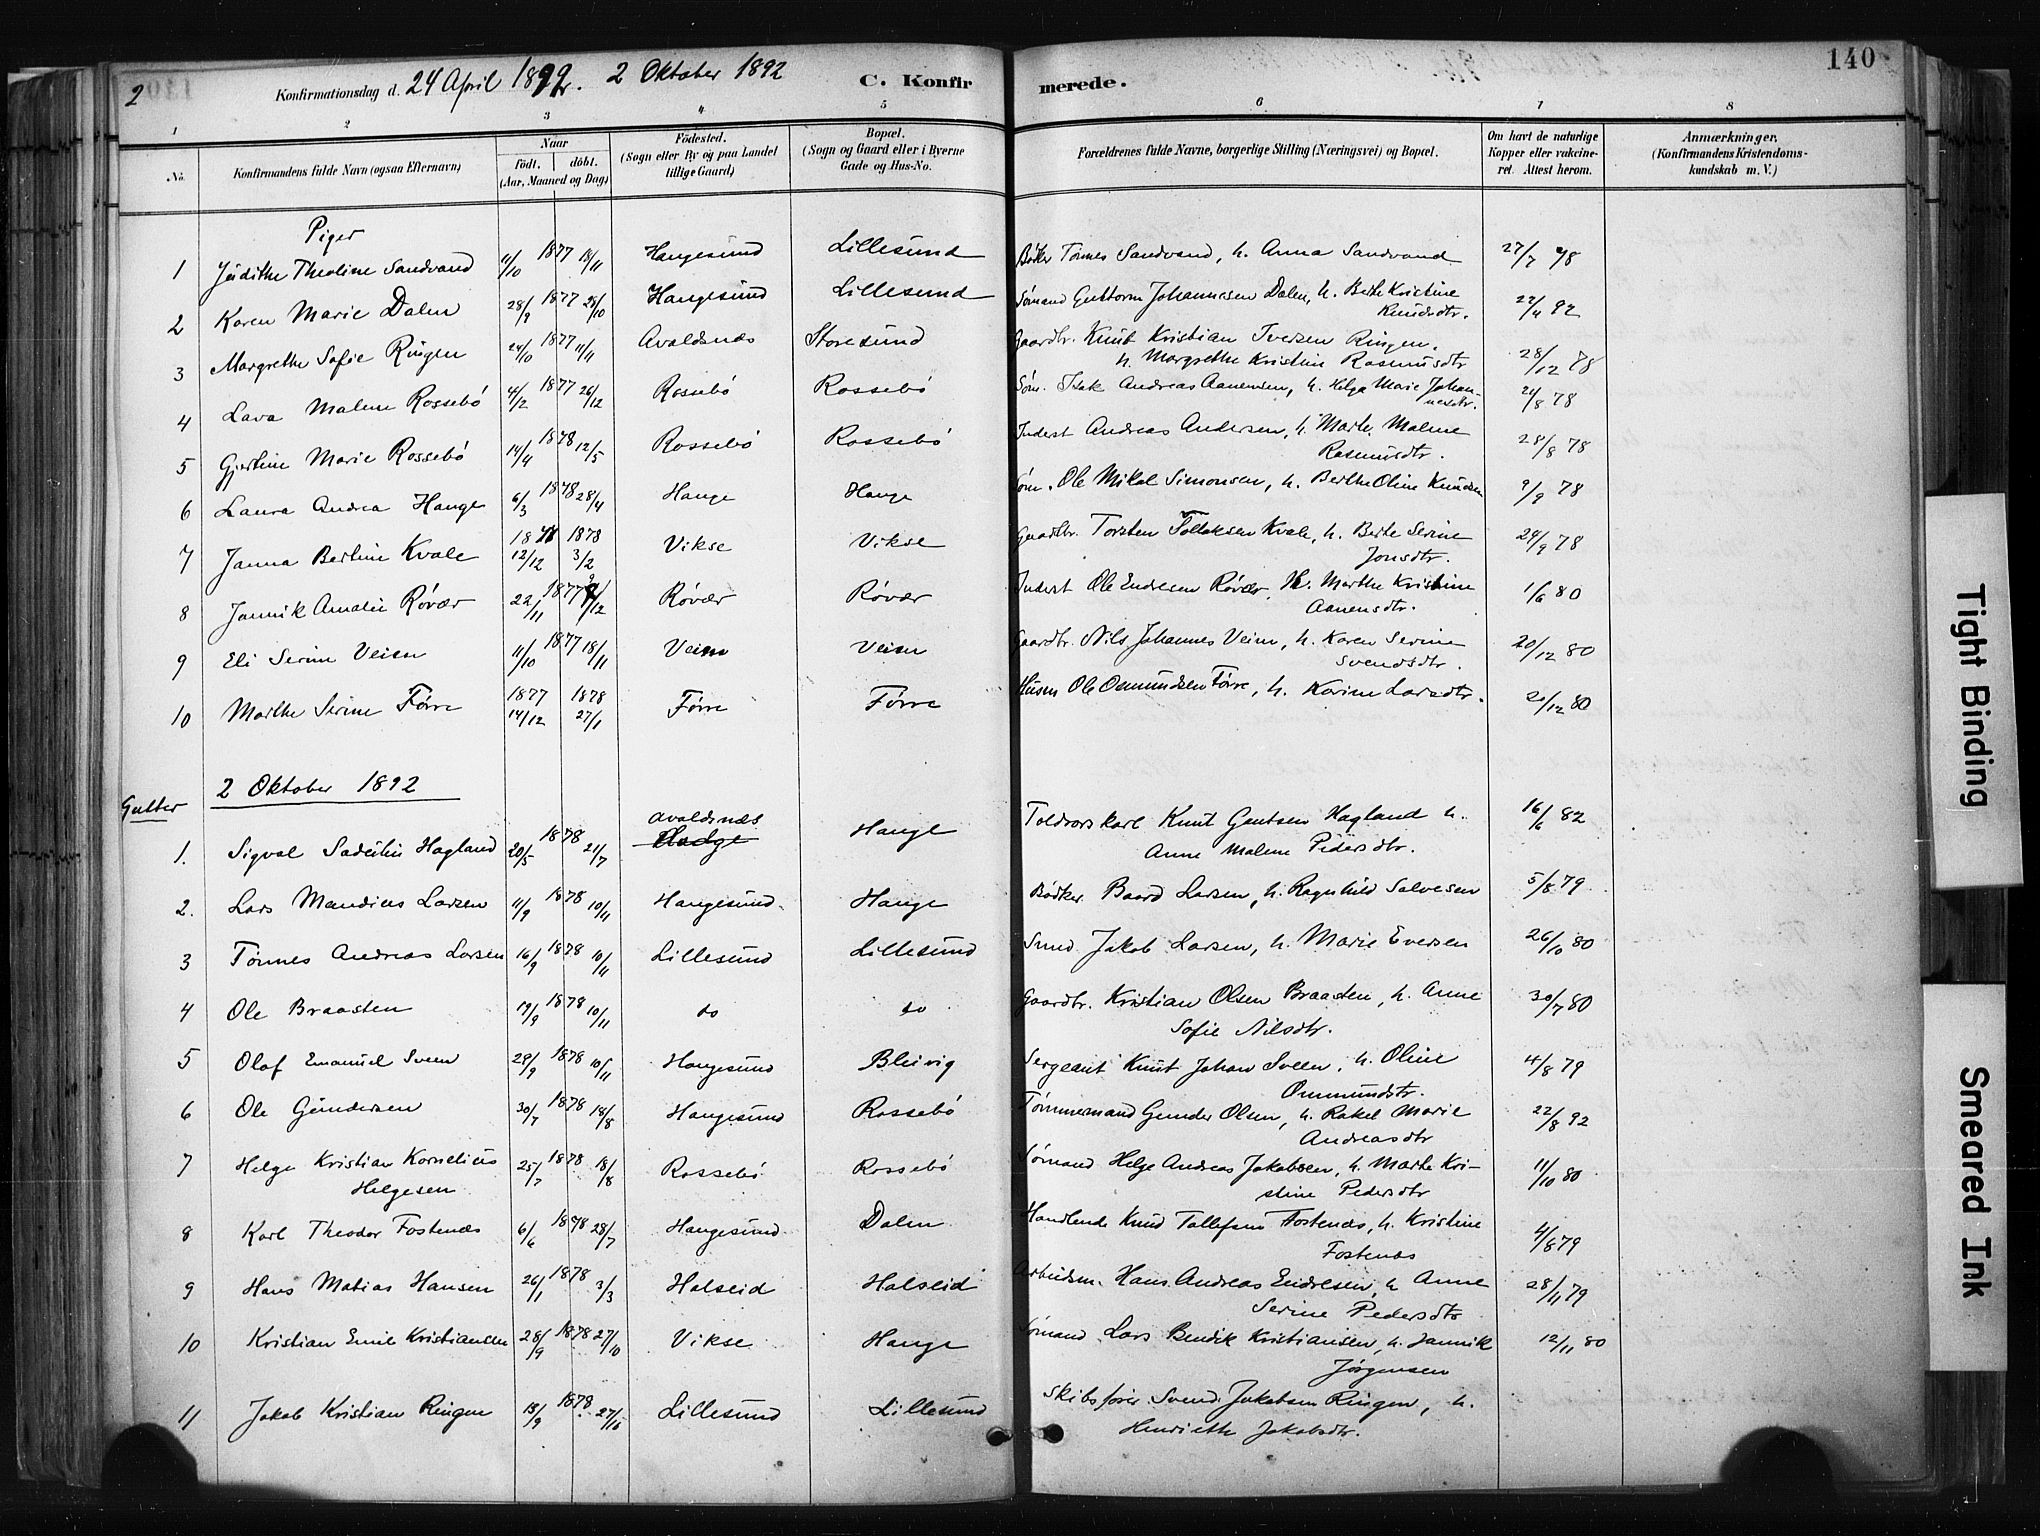 2
140
Konfirmationsdag d. 24 April 1892. 2 Oktober 1892
C. Konfirmerede.
1 2 3 4 5 6 7 8
No.
Konfirmandens fulde Navn (ogsaa Efternavn)
Naar
født. døbt.
(Aar, Maaned og Dag)
Fødested.
(Sogn eller By og paa Landet
tillige Gaard)
Bopæl.
(Sogn og Gaard eller i Byerne
Gade og Hus-No.
Forældrenes fulde Navne, borgerlige Stilling (Næringsvei) og Bopæl.
Om havt de naturlige
Kopper eller vakcine-
ret. Attest herom.
Anmærkninger,
(Konfirmandens Kristendoms-
kundskab m. V.)
Piger
1 Judithe Theoline Sandvand 11/10 1877 18/11 Haugesund Lillesund Bødker Tønnes Sandvand, h. Anna Sandvand 27/7 78
2 Karen Marie Dalen 28/9 1877 28/10 Haugesund Lillesund Sømand Guttorm Johannesen Dalen, h. Berthe Kristine
Knudsdtr. 22/4 92
3 Margrethe Sofie Ringen 24/10 1877 11/11 Avaldsnæs Storesund Gaardbr. Knut Kristian Iversen Ringen,
h. Margrethe Kristine Rasmusdtr 28/12 78
4 Lava Malene Rossebö 4/2 1877 26/12 Rossebö Rossebö Søm. Isak Andreas Aanensen, h. Helga Marie Johan-
nesdtr. 24/8 78
5 Gjertine Marie Rossebö 14/4 1878 12/5 Rossebö Rossebö Inderst Andreas Andersen, h. Marte Malene
Rasmusdtr. 28/8 78
6 Laura Andrea Hauge 6/3 1878 28/4 Hauge Hauge Søm. Ole Mikal Simonsen, h. Berthe Oline Knudsen 9/9 78
7 Janna Bertine Kvale 12/12 1878 3/2 Vikse Vikse Gaardbr. Torsten Tollaksen Kvale, h. Berte Serine
Jonsdtr. 24/9 78
8 Jannik Amalie Røvær 22/11 1877 9/12 Røvær Røvær Inderst Ole Endresen Røvær, h. Marthe Kristine
Aanensdtr. 1/6 80
9 Eli Serine Veim 11/10 1877 18/11 Veim Veim Gaardbr. Nils Johannes Veim, h. Karen Serine
Svendsdtr. 20/12 80
10 Marthe Serine Førre 1877 14/12 1878 27/1 Førre Førre Husm Ole Osmundsen Førre, h. Karine Larsdtr. 20/12 80
2 Oktober 1892
Gutter
1. Sigval Hagland 20/5 1878 21/7 Avaldsnæs Hauge Toldrorskarl Knut Hagland h.
Anne Malene Pedersdtr. 16/6 82
2. Lars Mandius Larsen 11/9 1878 10/11 Haugesund Hauge Bødker Baard Larsen, h. Ragnhild Salvesen 5/8 79
3 Tönnes Andreas Larsen 16/9 1878 10/11 Lillesund Lillesund Smed Jakob Larsen, h. Marie Eversen 26/10 80
4 Ole Braasten 19/9 1878 10/11 do do Gaardbr. Kristian Olsen Braasten, h. Anne
Sofie Nilsdtr. 30/7 80
5 Olaf Emanuel Sveen 29/9 1878 10/11 Haugesund Bleivig Sergeant Knut Johan Sveen, h. Oline
Ommundstr. 4/8 79
6 Ole Gundersen 30/7 1878 18/8 Haugesund Rossebö Tömmermand Gunder Olsen, h. Rakel Marie
Andreasdtr 22/8 92
7 Helge Kristian Kornelius
Helgesen 25/7 1878 18/8 Rossebö Rossebö Sømand Helge Andreas Jakobsen, h. Marte Kri-
stine Pedersdtr 11/10 80
8 Karl Theodor Fostenæs 6/6 1878 28/7 Haugesund Dalen Handlende Knud Tollefsen Fostenæs, h. Kristine
Fostenæs 4/8 79
9 Hans Matias Hansen 26/1 1878 3/3 Halseid Halseid Arbeidsm. Hans Andreas Endresen, h. Anne
Serine Pedersdtr 28/11 79
10 Kristian Emil Kristiansen 28/9 1878 27/10 Vikse Hauge Sømand Lars Bendik Kristiansen, h. Jannik
Jørgensen 12/11 80
11 Jakob Kristian Ringen 13/9 1878 27/10 Lillesund Lillesund Skibsfører Svend Jakobsen Ringen, h.
Henriette Jakobsdtr.
Tight Binding
Smeared Ink